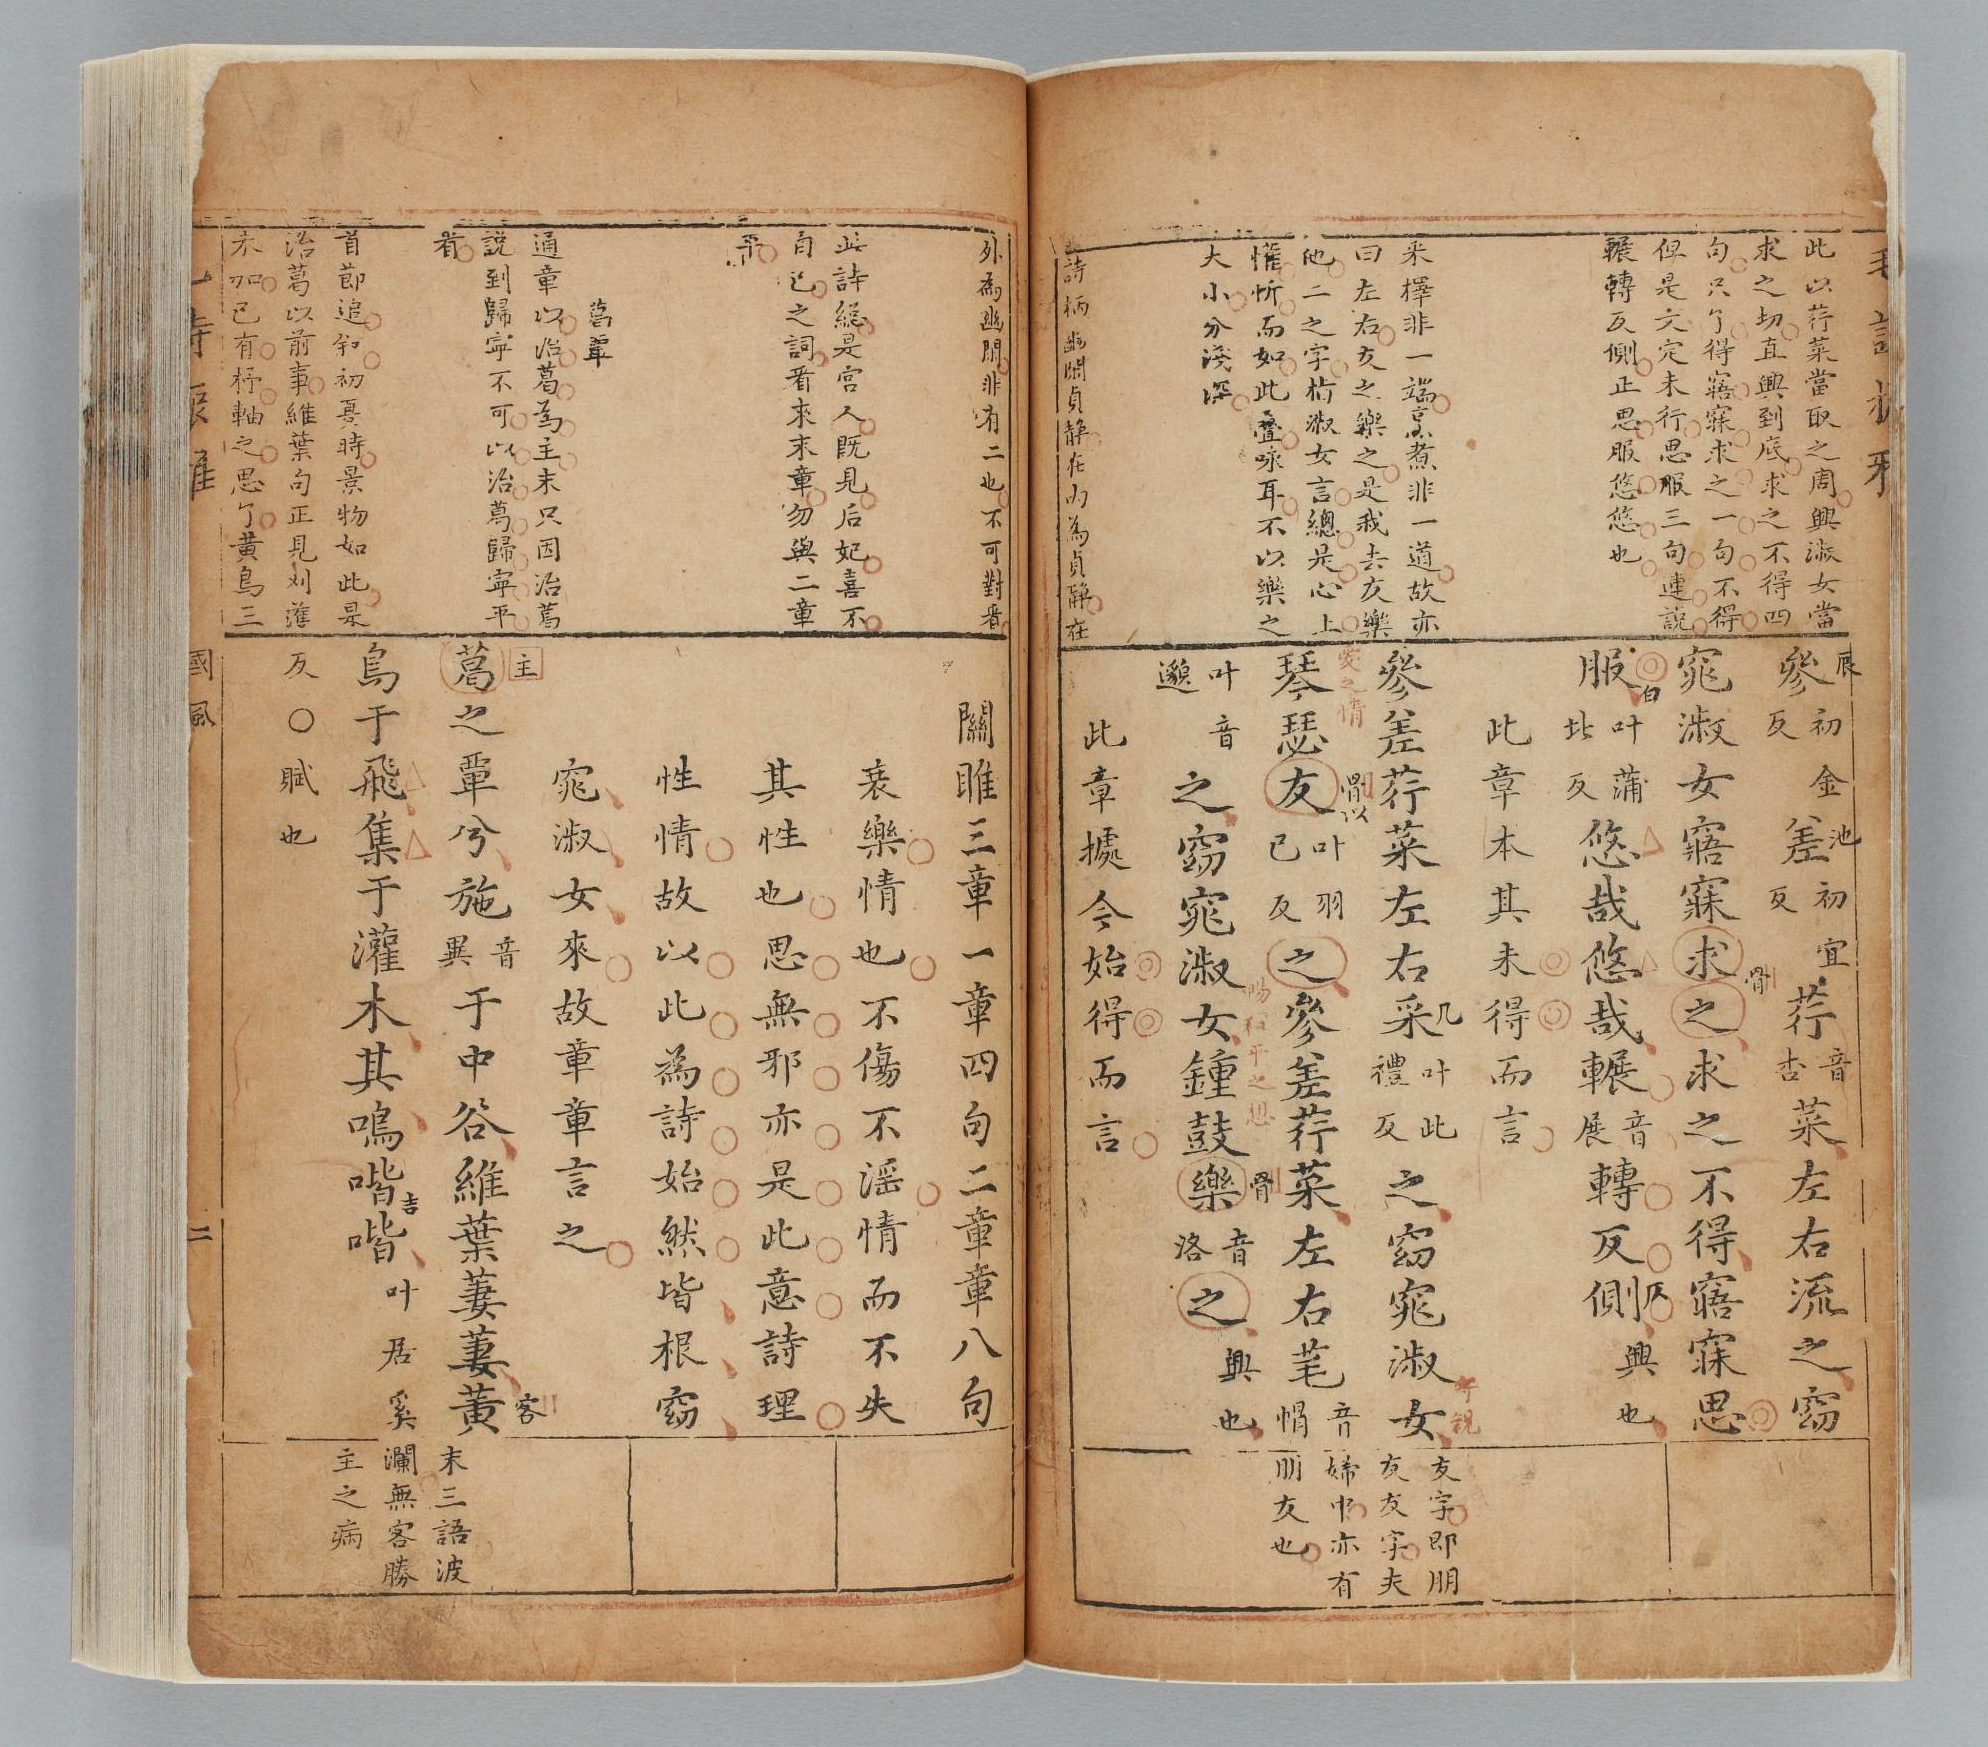 此以荇菜當取之周興淑女當
求之切直興到底求之不得四
句只了得寤寐求之一句不得
但是文定未行思服三句連說
輾轉反側正思服悠悠也
采擇非一端烹煮非一道故亦
曰左右友之樂之是我去友樂
他二之字指淑女言總是心上
懽忻而如此疊咏耳不以樂之
大小分淺深
詩柄幽閒貞靜在內為貞靜在
參初金反差初宜反荇音杏菜左右流之窈
窕淑女寤寐求之求之不得寤寐思
服叶蒲北反悠哉悠哉輾音展轉反側興也
此章本其未得而言
參差荇菜左右采叶此禮反之窈窕淑女
琴瑟友叶羽已反之參差荇菜左右芼音帽
叶音邈之窈窕淑女鍾鼓樂音洛之興也
此章據今始得而言
友字即朋
友友字夫
婦中亦有
朋友也
外為幽閒非有二也不可對看
此詩總是宮人既見后妃喜不
自已之詞看來末章勿與二章
平
葛覃
通章以治葛為主末只因治葛
說到歸寧不可以治葛歸寧平
看
首節追叙初夏時景物如此是
治葛以前事維葉句正見刈濩
未加已有杼軸之思了黃鳥三
關雎三章一章四句二章章八句
哀樂情也不傷不淫情而不失
其性也思無邪亦是此意詩理
性情故以此為詩始然皆根窈
窕淑女來故章章言之
葛之覃兮施音異于中谷維葉萋萋黃
鳥于飛集于灌木其鳴喈喈叶居奚
反○賦也
末三語波
瀾無客勝
主之病
國風
二